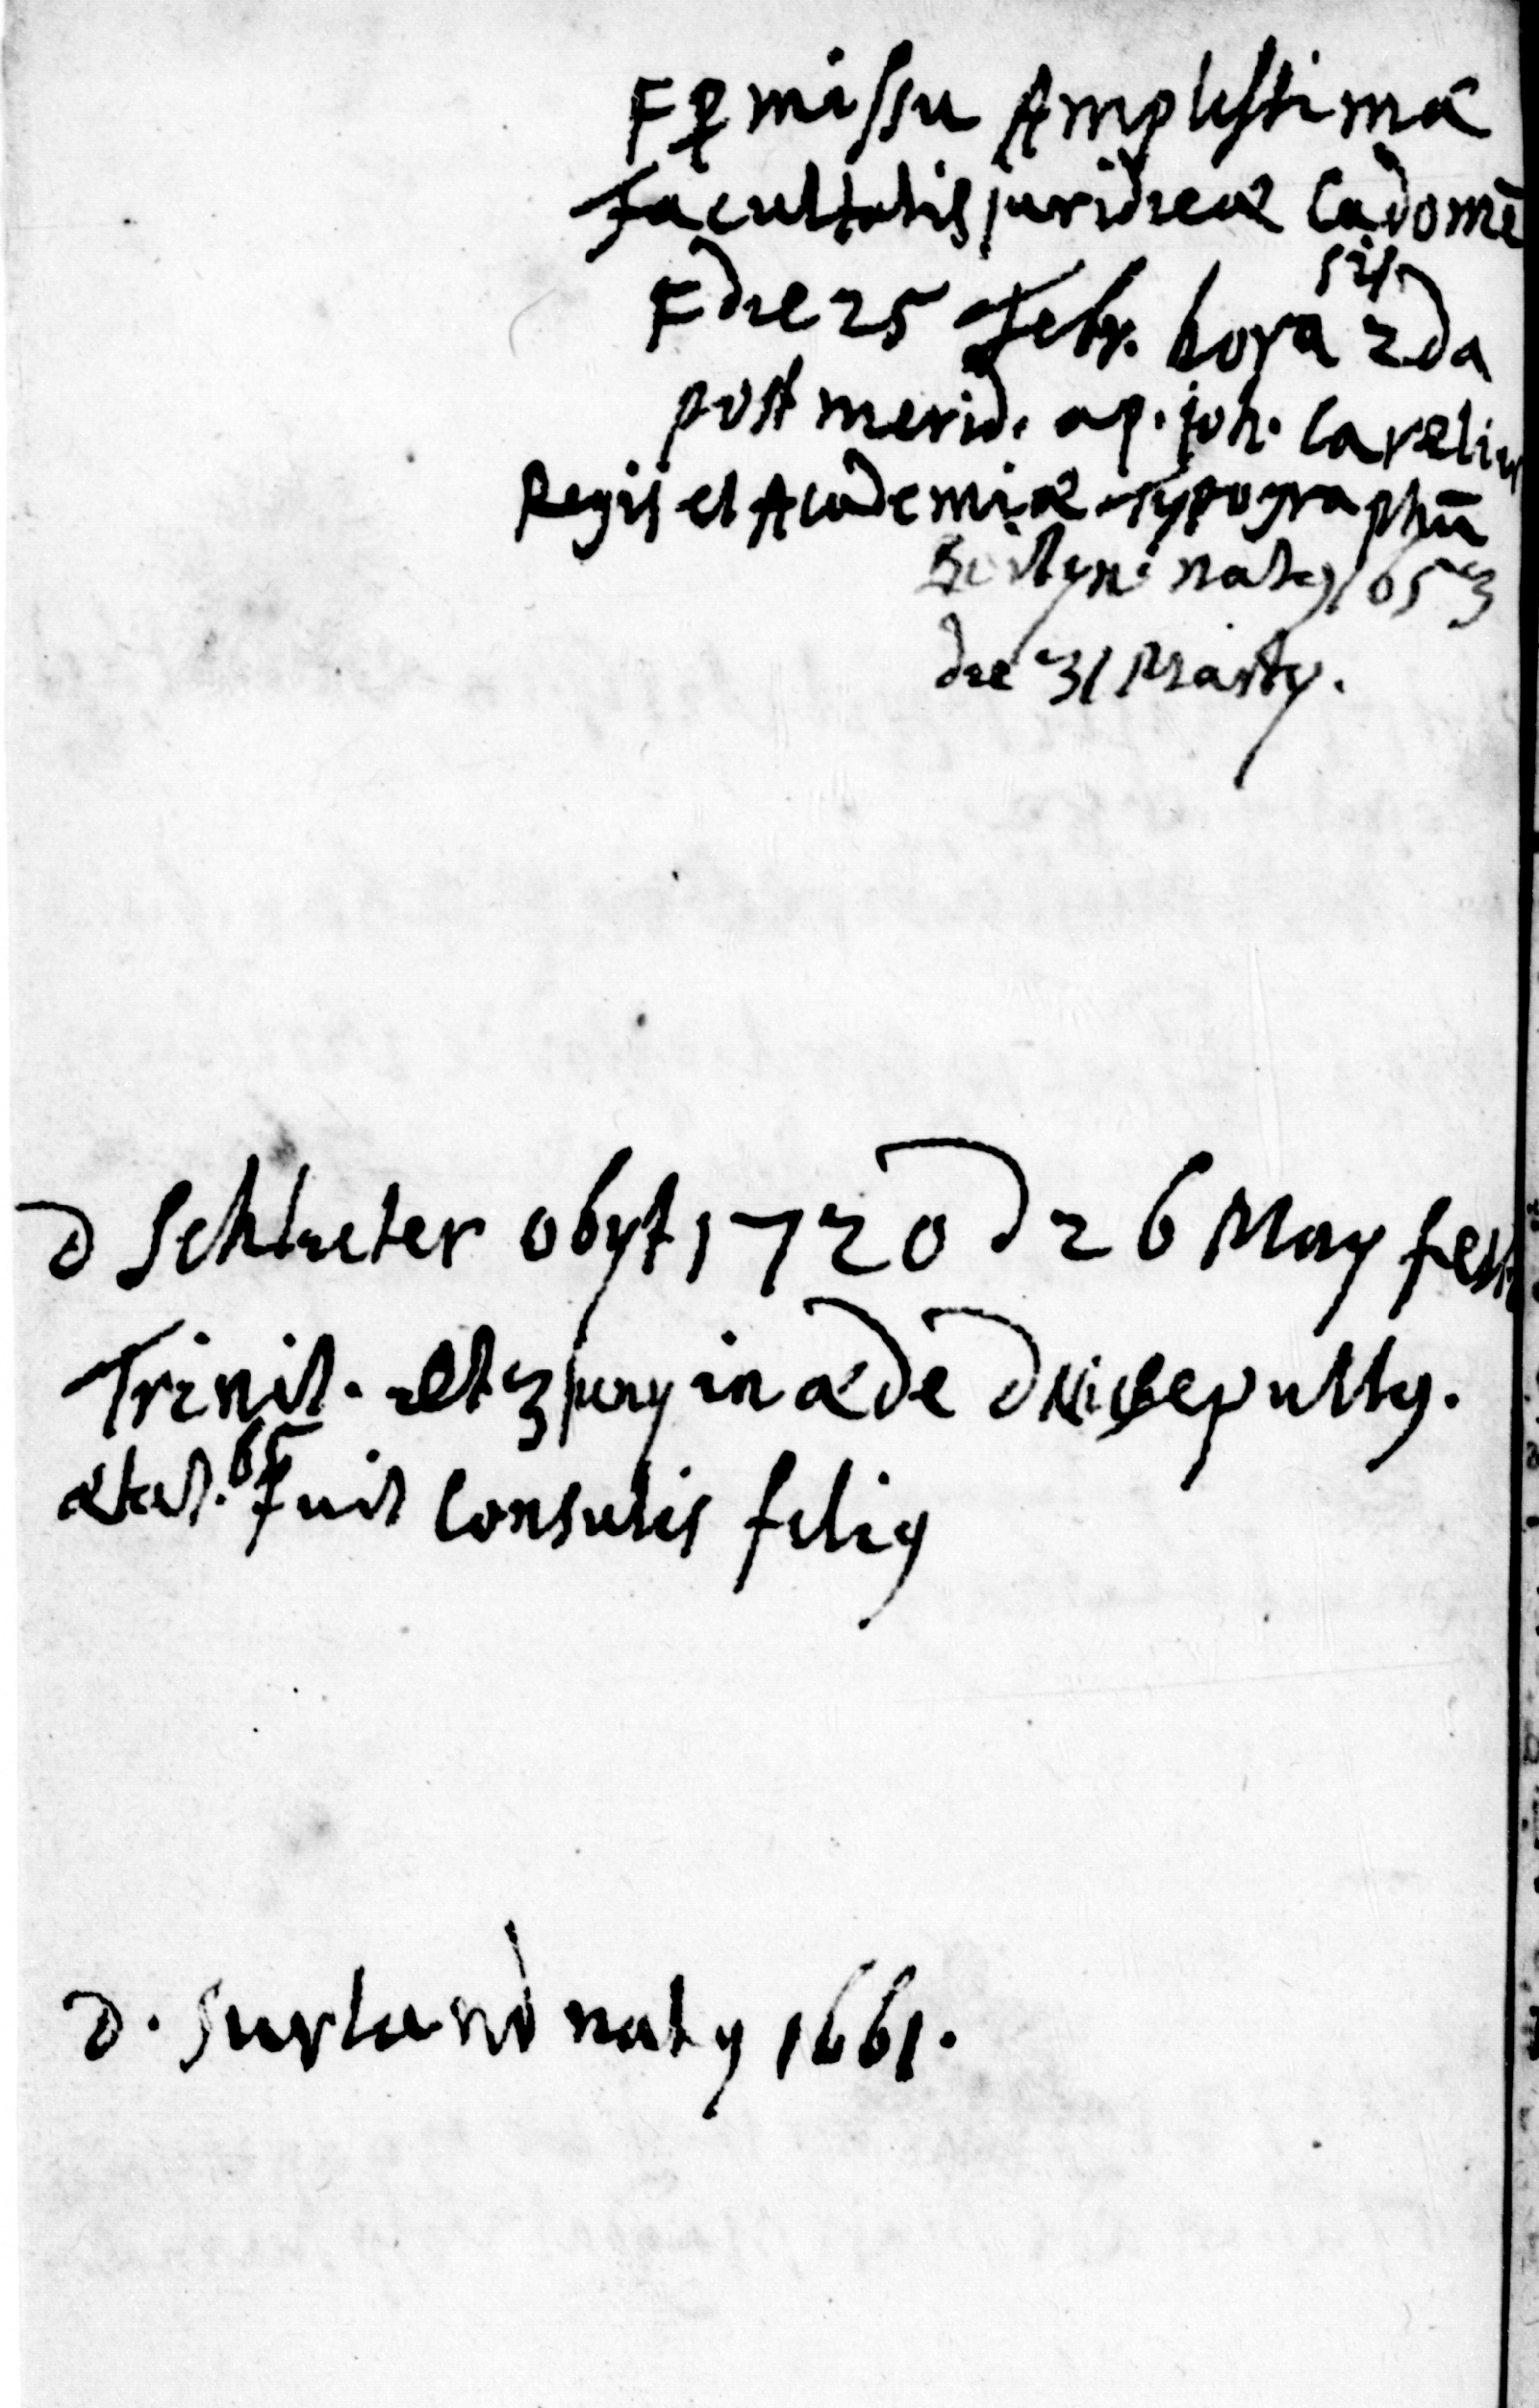 F ꝑmissu Amplissimæ
Facultatis juridicæ Cadomē
sis
F die 25 Febr. hora 2da
post merid. ap. Joh. Cavelier
Regis et Academiæ Typographū
natꝰ 1653
die 31 Martij.
D Schlueter obijt 1720 d 26 Maij fest
Trinit. et 3 Junij in æde D Nic sepultꝰ.
ætat. 65 fuit Consulis filiꝰ
D. Surland natꝰ 1661.